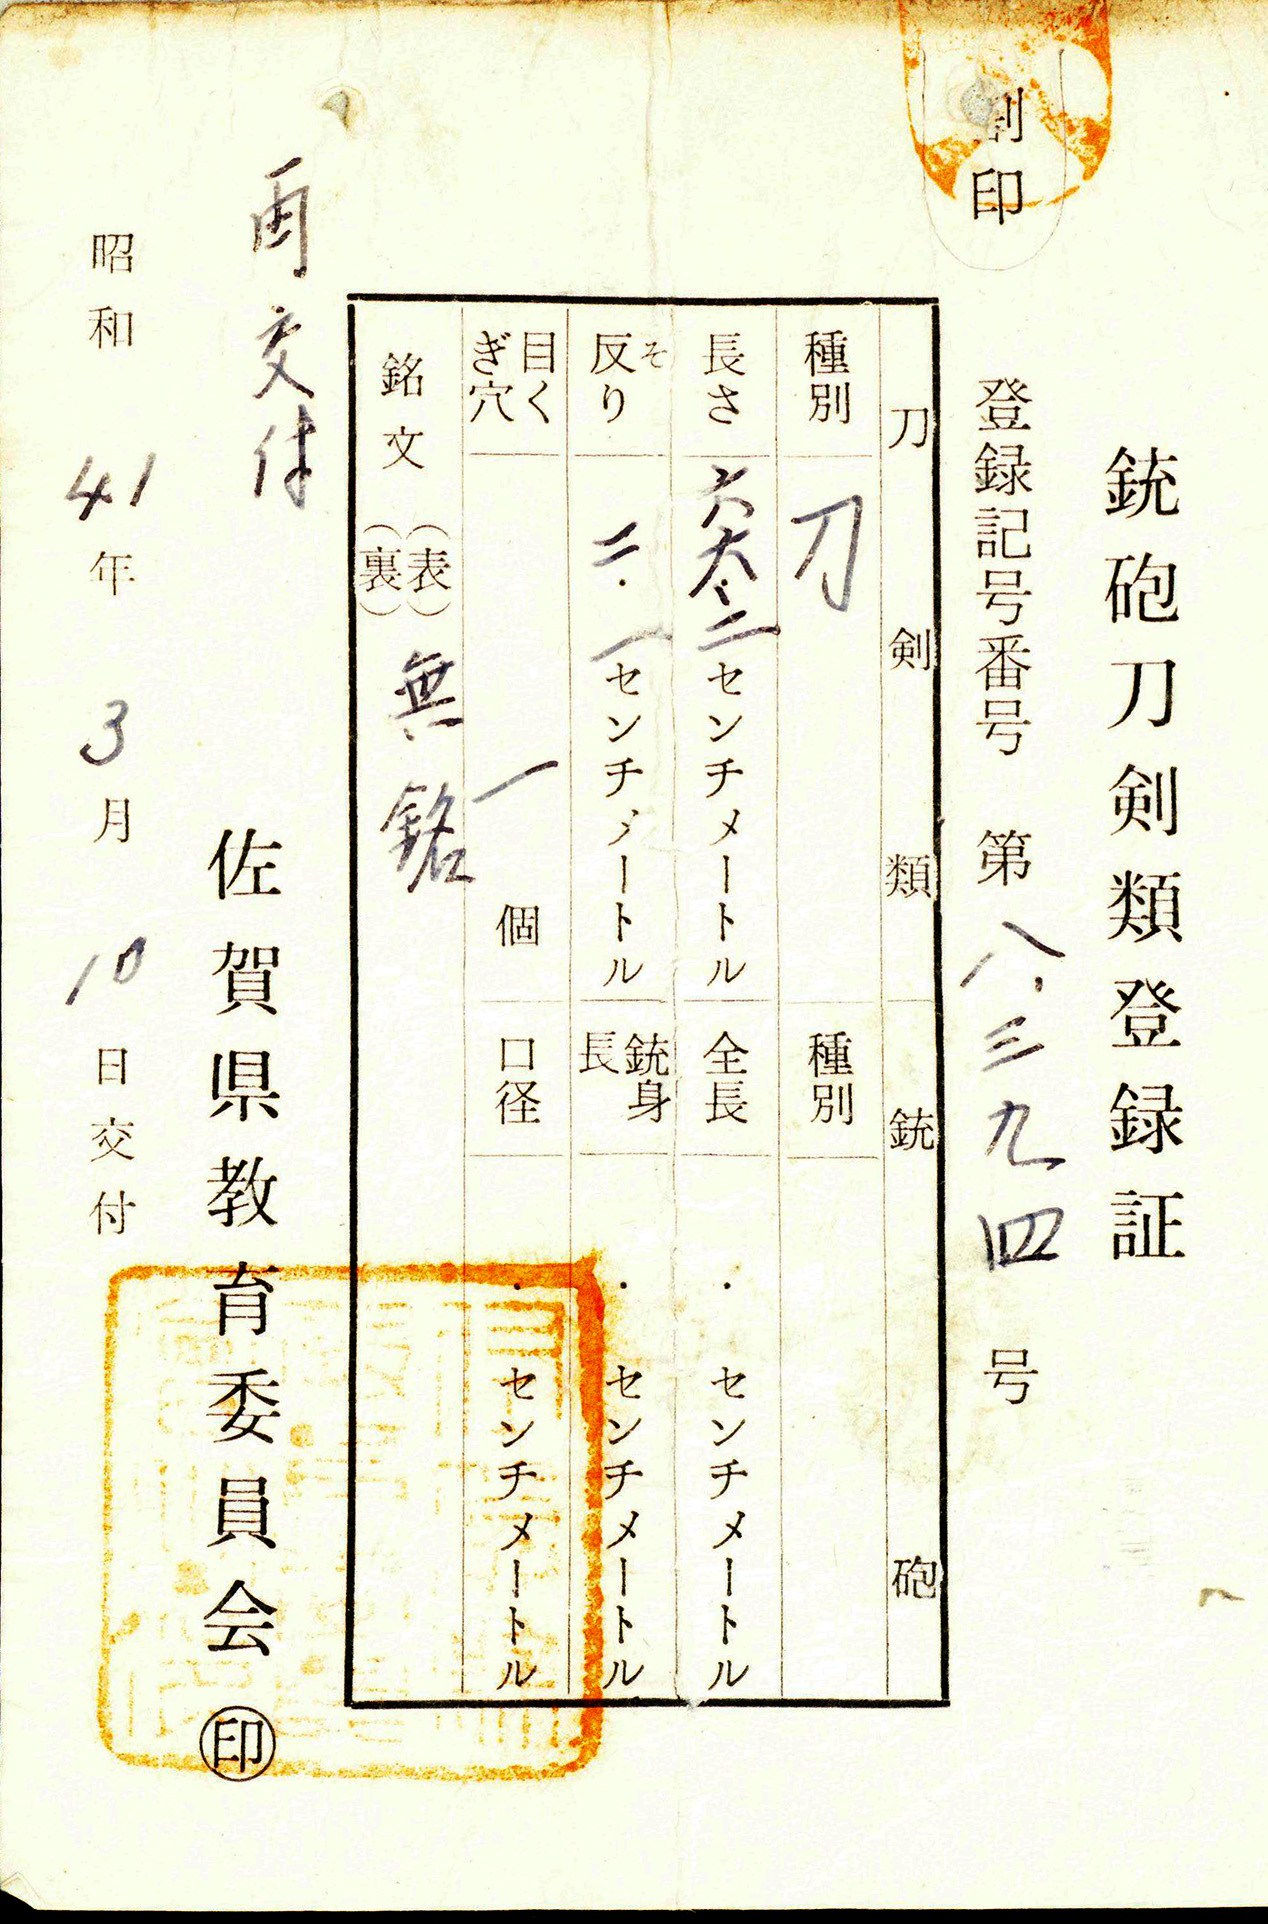 銃砲刀剣類登録証
割印
登録記号番号 第八、三九四号
刀剣類
銃砲
種別 刀
種別
長さ 六六・二センチメートル
全長 ・ センチメートル
反り そ 二・一センチメートル
銃身長 ・ センチメートル
目くぎ穴 一個
口径 ・ センチメートル
銘文 (表) (裏) 無銘
再交付
佐賀県教育委員会 ㊞
昭和41年3月10日交付